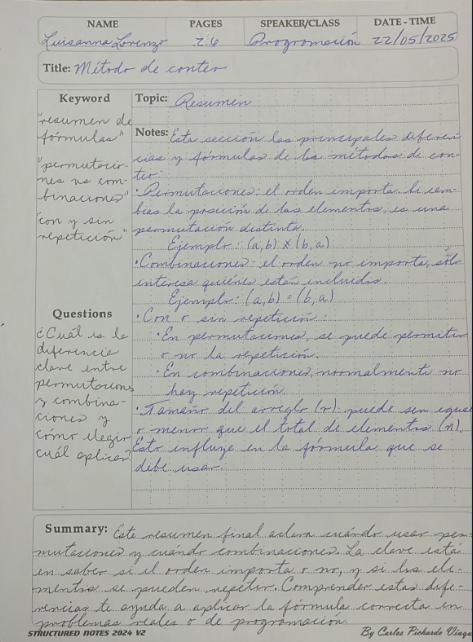 NAME PAGES SPEAKER/CLASS DATE - TIME
Luisanna Lorenzo 7.6 Programación 22/05/2025
Title: Método de conteo
Keyword
"resumen de
fórmulas"
"permutacio-
nes vs com-
binaciones"
"con y sin
repetición"
Questions
¿Cuál es la
diferencia
clave entre
permutaciones
y combina-
ciones y
cómo elegir
cuál aplicar?
Topic: Resumen
Notes: Esta sección las principales diferen
cias y fórmulas de los métodos de con-
teo:
• Permutaciones: el orden importa. Si cam-
bias la posición de los elementos, es una
permutación distinta.
Ejemplo: (a,b) ≠ (b,a)
• Combinaciones: el orden no importa, sólo
interesa quiénes están incluidos.
Ejemplo: (a,b) = (b,a)
• Con o sin repetición:
• En permutaciones, se puede permitir
o no la repetición.
• En combinaciones, normalmente no
hay repetición.
• Tamaño del arreglo (r): puede ser igual
o menor que el total de elementos (n).
Esto influye en la fórmula que se
debe usar.
Summary: Este resumen final aclara cuándo usar per
mutaciones y cuándo combinaciones. La clave está
en saber si el orden importa o no, y si los ele-
mentos se pueden repetir. Comprender estas dife-
rencias te ayuda a aplicar la fórmula correcta en
problemas reales o de programación.
STRUCTURED NOTES 2024 V2 By Carlos Pichardo